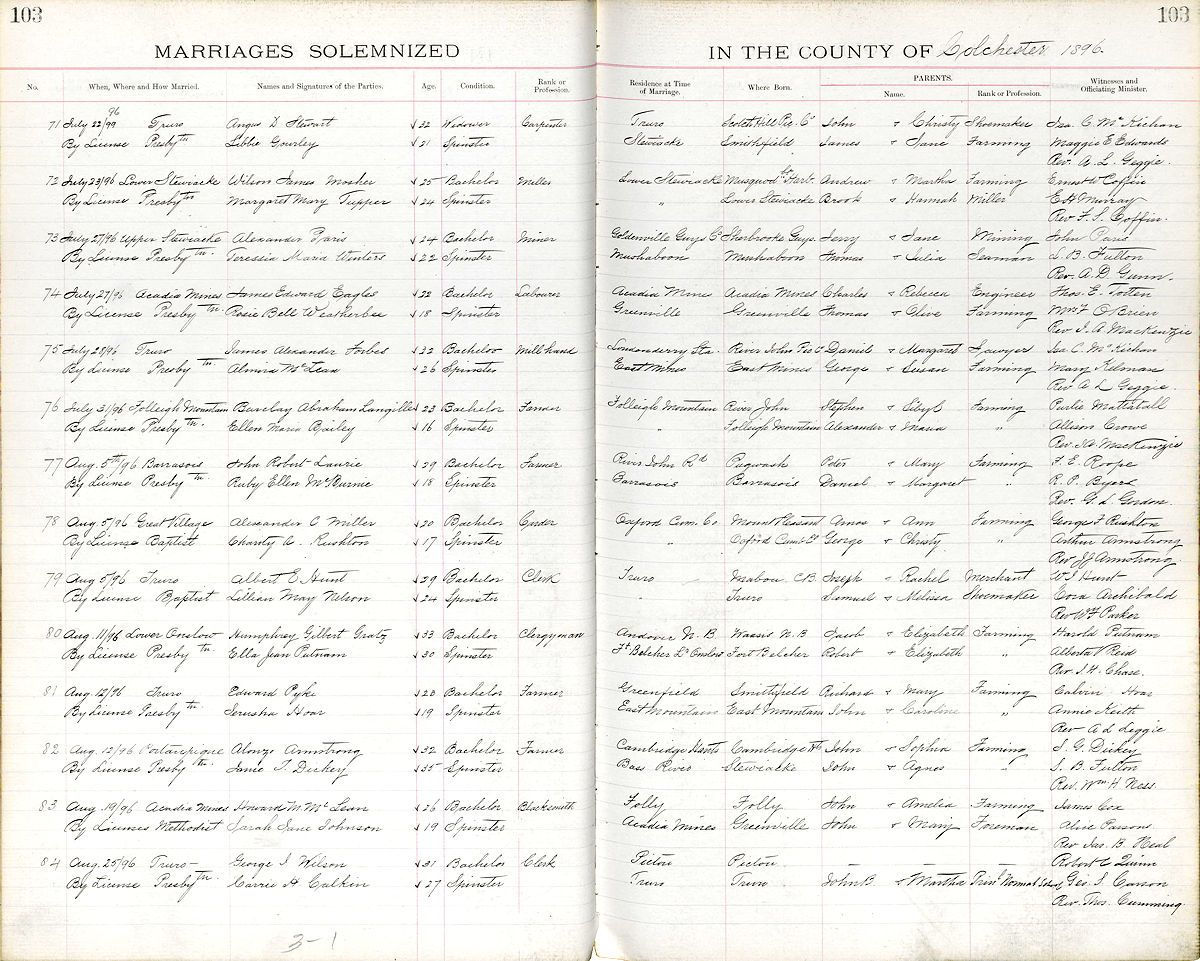 103
103
MARRIAGES SOLEMNIZED
IN THE COUNTY OF Colchester 1896.
No. When, Where and How Married. Names and Signatures of the Parties. Age. Condition. Rank or Profession. Residence at Time of Marriage. Where Born. PARENTS. Name. Rank or Profession. Witnesses and Officiating Minister.
71 July 22/99 96 Truro Angus D Stewart 32 Widower Carpenter Truro Scotch Hill Pic. Co John & Christy Shoemaker Isa. C. McKichan
By License Presbytn Libbie Gourley 21 Spinster Stewiacke Smithfield James & Jane Farming Maggie E Edwards
Rev. A. L. Geggie.
72 July 23/96 Lower Stewiacke Wilson James Mosher 25 Bachelor Miller Lower Stewiacke Musquodt Harb. Andrew & Martha Farming Ernest W Coffin
By License Presbytn Margaret Mary Tupper 24 Spinster " Lower Stewiacke Brook & Hannah Miller E H Murray
Rev F. S. Coffin.
73 July 27/96 Upper Stewiacke Alexander Paris 24 Bachelor Miner Goldenville Guys Co Sherbrooke Guys. Jerry & Jane Mining John Paris
By License Presbytn. Teressia Maria Winters 22 Spinster Mushaboon Mushaboon Thomas & Julia Seaman L. B. Fulton
Rev. A. D. Gunn.
74 July 27/96 Acadia Mines James Edward Eagles 22 Bachelor Labourer Acadia Mine Acadia Mines Charles & Rebecca Engineer Thos. E. Totten
By License Presbytn. Rosie Bell Weatherbee 18 Spinster Greenville Greenville Thomas & Olive Farming Mrs F O'Brien
Rev. J. A. Mackenzie
75 July 28/96 Truro James Alexander Forbes 32 Bachelor Mill hand Londonderry Sta. River John Pic Co Daniel & Margaret Lawyer Isa C. McKichan
By License Presbytn Almira McLean 26 Spinster East Mines East Mines George & Susan Farming Mary Kilman
Rev. A L Geggie.
76 July 31/96 Folleigh Mountain Barclay Abraham Langille 23 Bachelor Farmer Folleigh Mountain River John Stephen & Sibyl Farming Mattatall
By License Presbytn. Ellen Maria Bailey 16 Spinster " Folleigh Mountain Alexander & Maria " Allison Crowe
Rev. J A. MacKenzie
77 Aug. 5th/96 Barrasois John Robert Laurie 29 Bachelor Farmer River John Rd Pugwash Peter & Mary Farming F. E. Roope
By License Presbytn. Ruby Ellen McBurnie 18 Spinster Barrasois Barrasois Daniel & Margaret " R. P. Byers
Rev. G. L. Gordon.
78 Aug 5/96 Great Village Alexander C Miller 20 Bachelor Oxford Cum. Co Mount Pleasant Amos & Ann Farming George F Rushton
By License Baptist Charity A. Rushton 17 Spinster " Oxford Cumb Co George & Christy " Arthur Armstrong
Rev J J Armstrong.
79 Aug 5/96 Truro Albert E Hunt 29 Bachelor Clerk Truro Mabou C.B. Joseph & Rachel Merchant W J Hunt
By License Baptist Lillian May Nelson 24 Spinster " Truro Samuel & Melissa Shoemaker Cora Archibald
Rev W F Parker
80 Aug. 11/96 Lower Onslow Humphrey Gilbert Gratz 33 Bachelor Clergyman Andover N. B Waasis N. B Jacob & Elizabeth Farming Harold Putnam
By License Presbytn. Ella Jean Putnam 30 Spinster Ft Belcher Lr Onslow Fort Belcher Robert & Elizabeth " Alberta V Reid
Rev. J. H. Chase.
81 Aug 12/96 Truro Edward Pyke 20 Bachelor Farmer Greenfield Smithfield Richard & Mary Farming Calvin Hoar
By License Presbytn. Jerusha Hoar 19 Spinster East Mountain East Mountain John & Caroline " Annie Keith
Rev A L Geggie
82 Aug. 12/96 Portaupique Alonzo Armstrong 32 Bachelor Farmer Cambridge Hants Cambridge Hts John & Sophia Farming J. G. Dickey
By License Presbytn. Janie T. Dickey 35 Spinster Bass River Stewiacke John & Agnes " J. B. Fulton
Rev. Wm. H. Ness.
83 Aug 19/96 Acadia Mines Howard M. McLean 26 Bachelor Blacksmith Folly Folly John & Amelia Farming James Cox
By Licenses Methodist Sarah Jane Johnson 19 Spinster Acadia Mines Greenville John & Mary Foreman Alice Parsons
Rev Jas. B. Heal
84 Aug. 25/96 Truro George I Wilson 31 Bachelor Clerk Pictou Pictou — — — Robert E Quinn
By License Presbytn. Carrie H Calkin 27 Spinster Truro Truro John B. & Martha Prinl. Normal School Geo. S. Carson
Rev. Thos. Cumming.
3-1